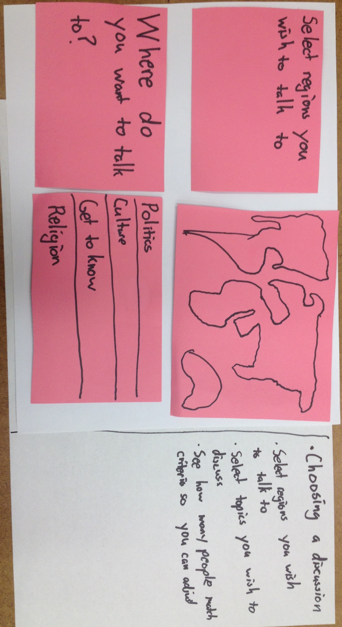 Select regions you
wish to talk to
Where do
you want to talk
to?
Politics
Culture
Get to know
Religion
• Choosing a discussion
• Select regions you wish
to talk to
• Select topics you wish to
discuss
• See how many people match
criteria so you can adjust